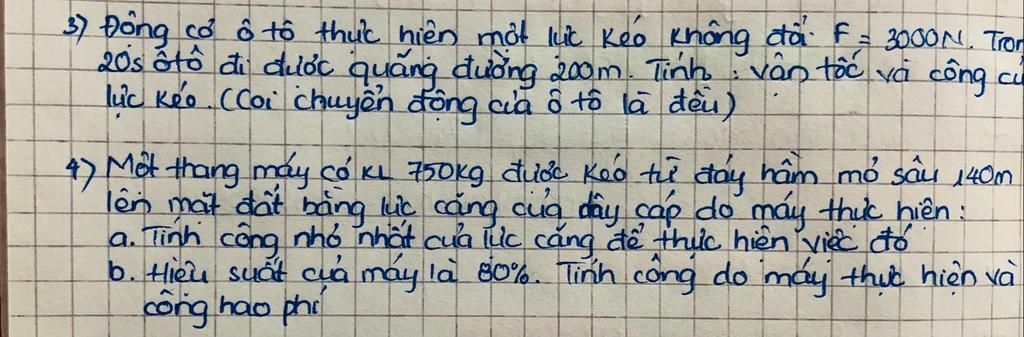 3) Động cơ ô tô thực hiện một lực kéo không đổi F = 3000N. Tron
20s ôtô đi được quãng đường 200m. Tính : vận tốc và công củ
lực kéo. (Coi chuyển động của ô tô là đều)
4) Một thang máy có KL 750kg được kéo từ đáy hầm mỏ sâu 140m
lên mặt đất bằng lực căng của dây cáp do máy thực hiện :
a. Tính công nhỏ nhất của lực căng để thực hiện việc đó
b. Hiệu suất của máy là 80%. Tính công do máy thực hiện và
công hao phí